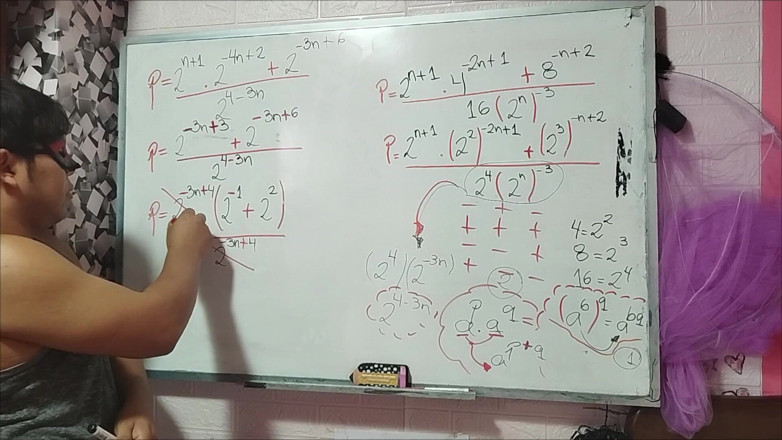 P = 2^{n+1} · 2^{-4n+2} + 2^{-3n+6}
2^{4-3n}
P = 2^{-3n+3} + 2^{-3n+6}
2^{4-3n}
P = 2^{-3n+4} (2^{-1} + 2^{2})
2^{-3n+4}
P = 2^{n+1} · 4^{-2n+1} + 8^{-n+2}
16 (2^{n})^{-3}
P = 2^{n+1} · (2^{2})^{-2n+1} + (2^{3})^{-n+2}
2^{4} (2^{n})^{-3}
- + -
+ + +
- + -
+ - -
4 = 2^{2}
8 = 2^{3}
16 = 2^{4}
(2^{4}) (2^{-3n})
2^{4-3n}
2
a^{p} · a^{q} =
a^{p+q}
(a^{b})^{q} = a^{bq}
1